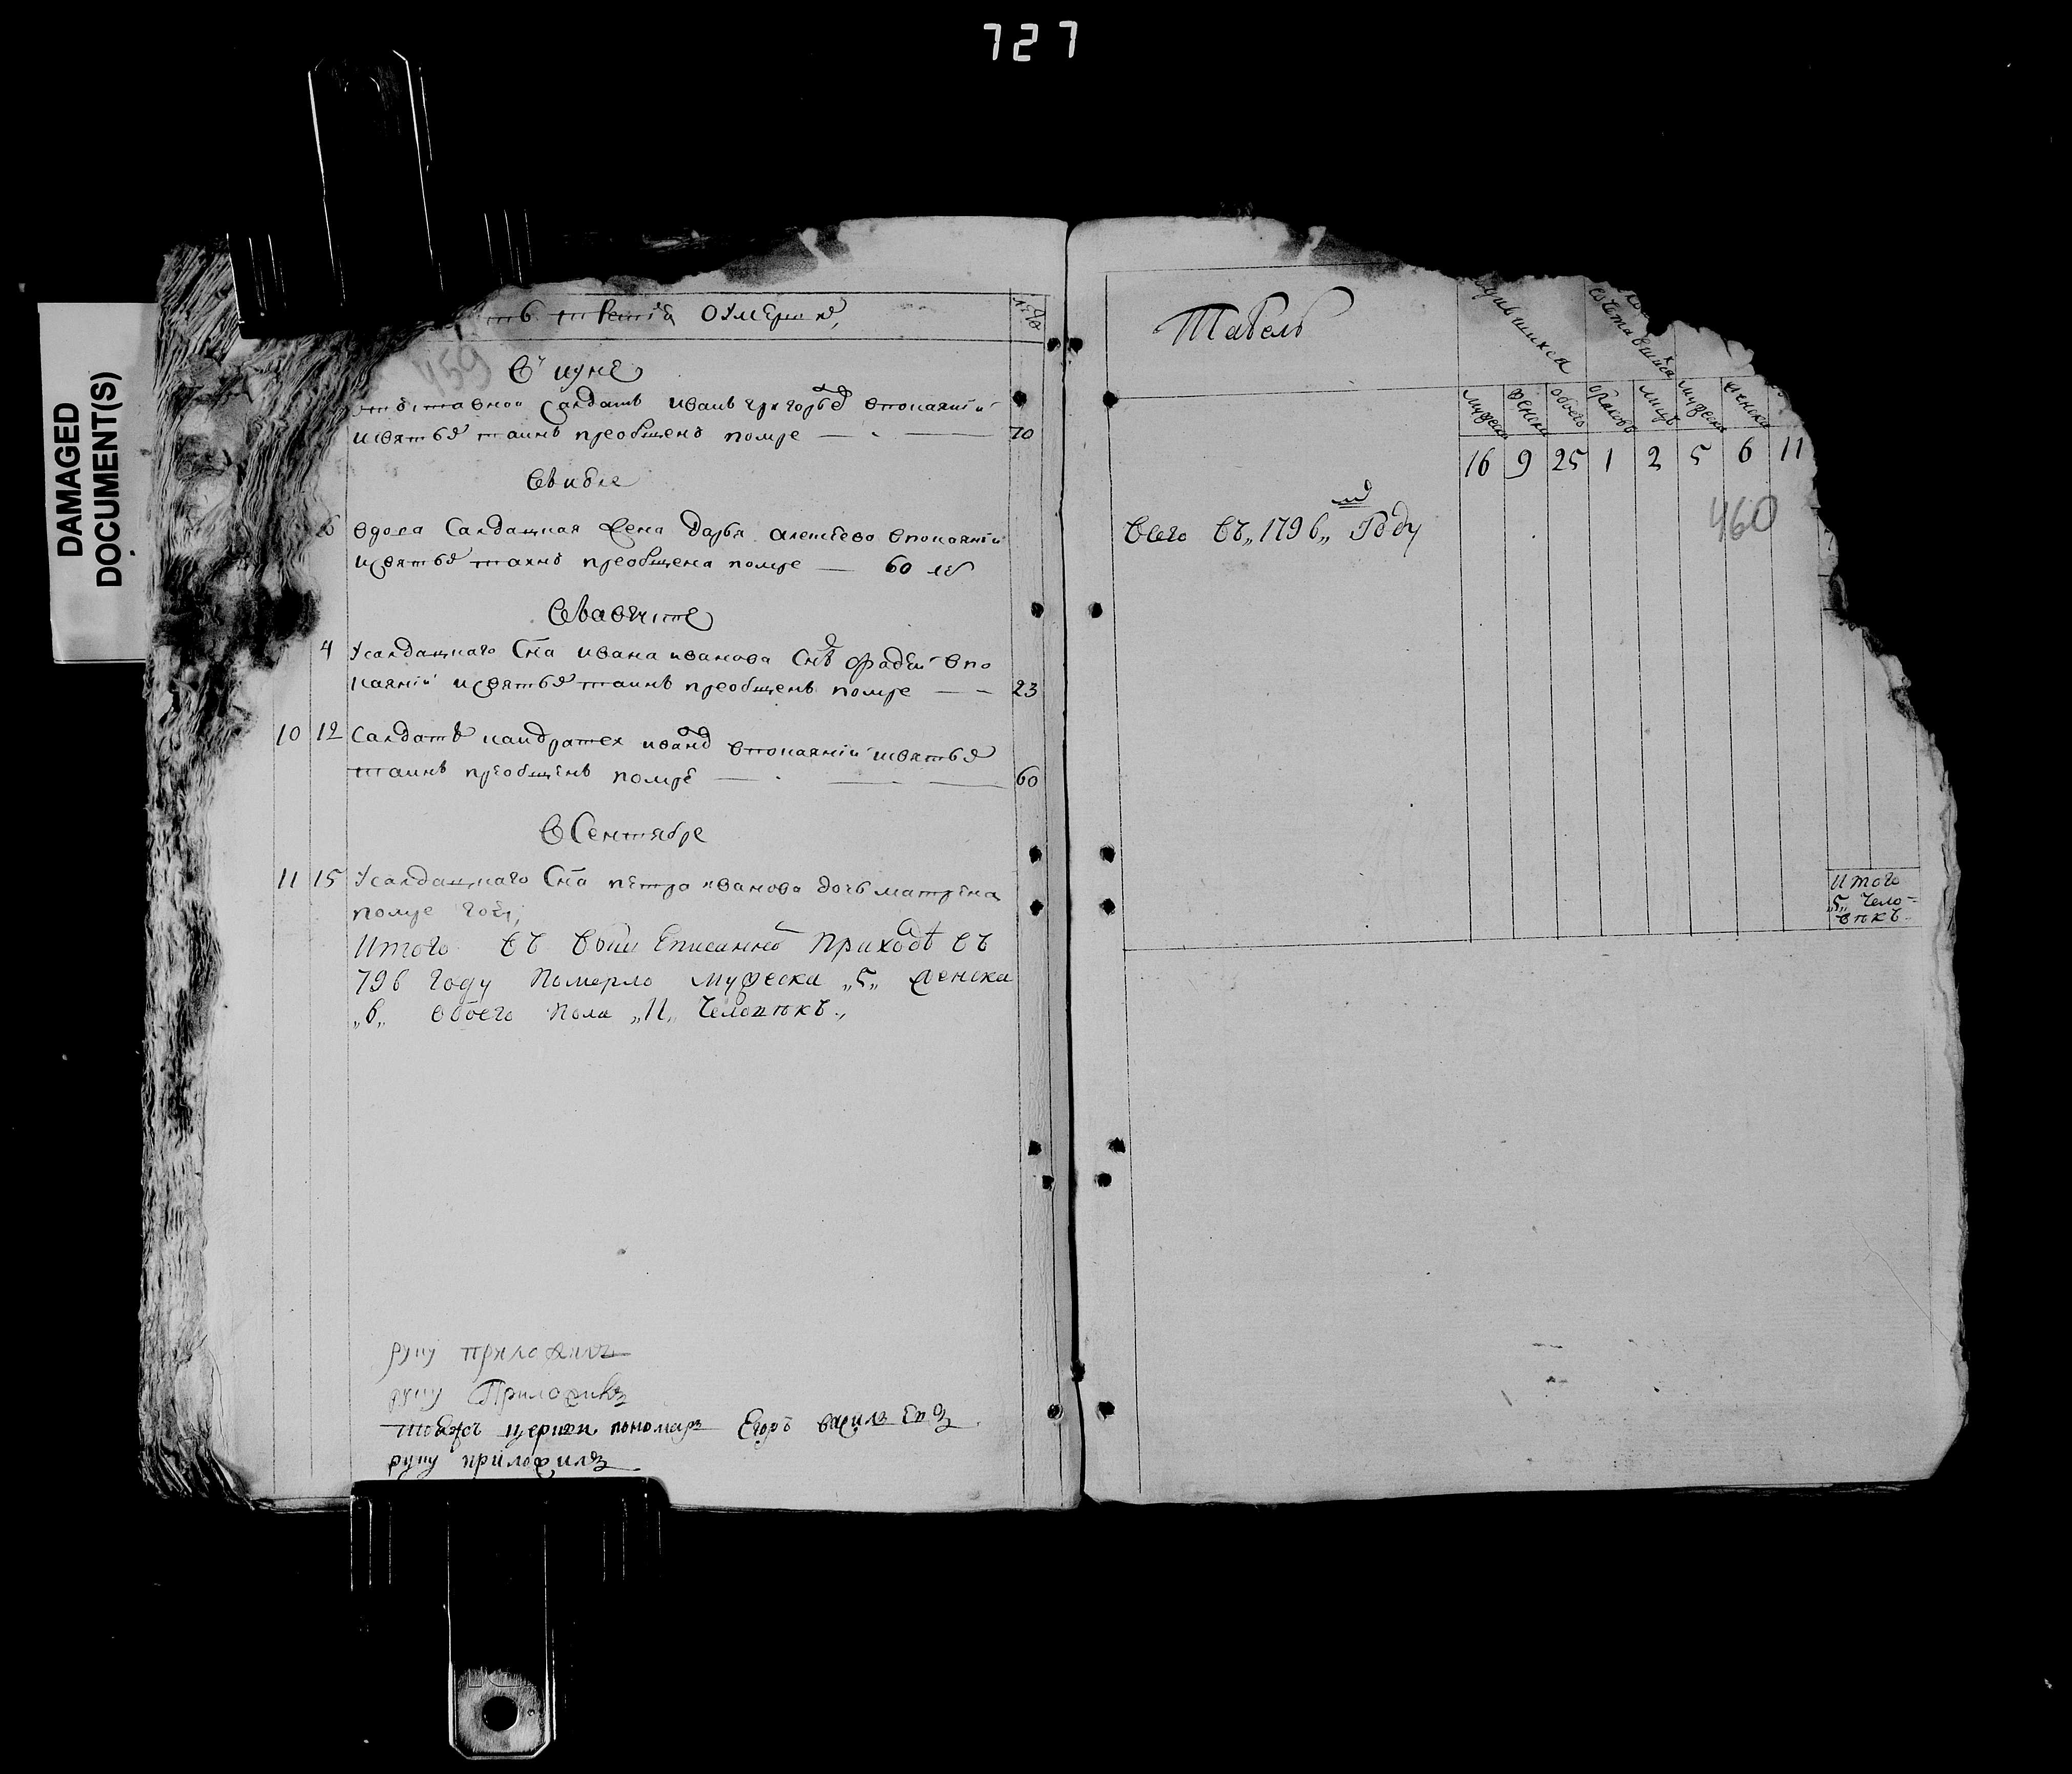 727
DAMAGED
DOCUMENT(S)
459
часть третия О умерших
лета
В июне
Отставной салдатъ иванъ григорьев в покаянии
и святых таинъ преобщенъ помре — 70
В июле
вдова Салдацкая жена дарья алексеева в покаянии
и святых таинъ преобщена помре — 60 лет
В августе
4 У салдацкаго Сна ивана иванова Снъ фадей в по
каянии и святых таинъ преобщенъ помре — — 23
10 12 Салдатъ кандратей иванов в покаянии и святых
таинъ преобщенъ помре — 60
В Сентябре
11 15 У салдацкаго Сна петра иванова дочь матрена
помре году
Итого въ выше писанной приходѣ въ
796 году Померло мужеска „5„ женска
„6„ обоего пола „11„ человѣкъ.,
руку приложилъ
руку Приложилъ
тойжъ церкви пономарь Егоръ василь евъ
руку приложилъ
Табель
родившихся
сочетавшихся
мужеска женска обоего браковъ лицъ мужеска женска
16 9 25 1 2 5 6 11
460
Всего въ„1796„ Году
Итого
„5„ чело=
вѣкъ.